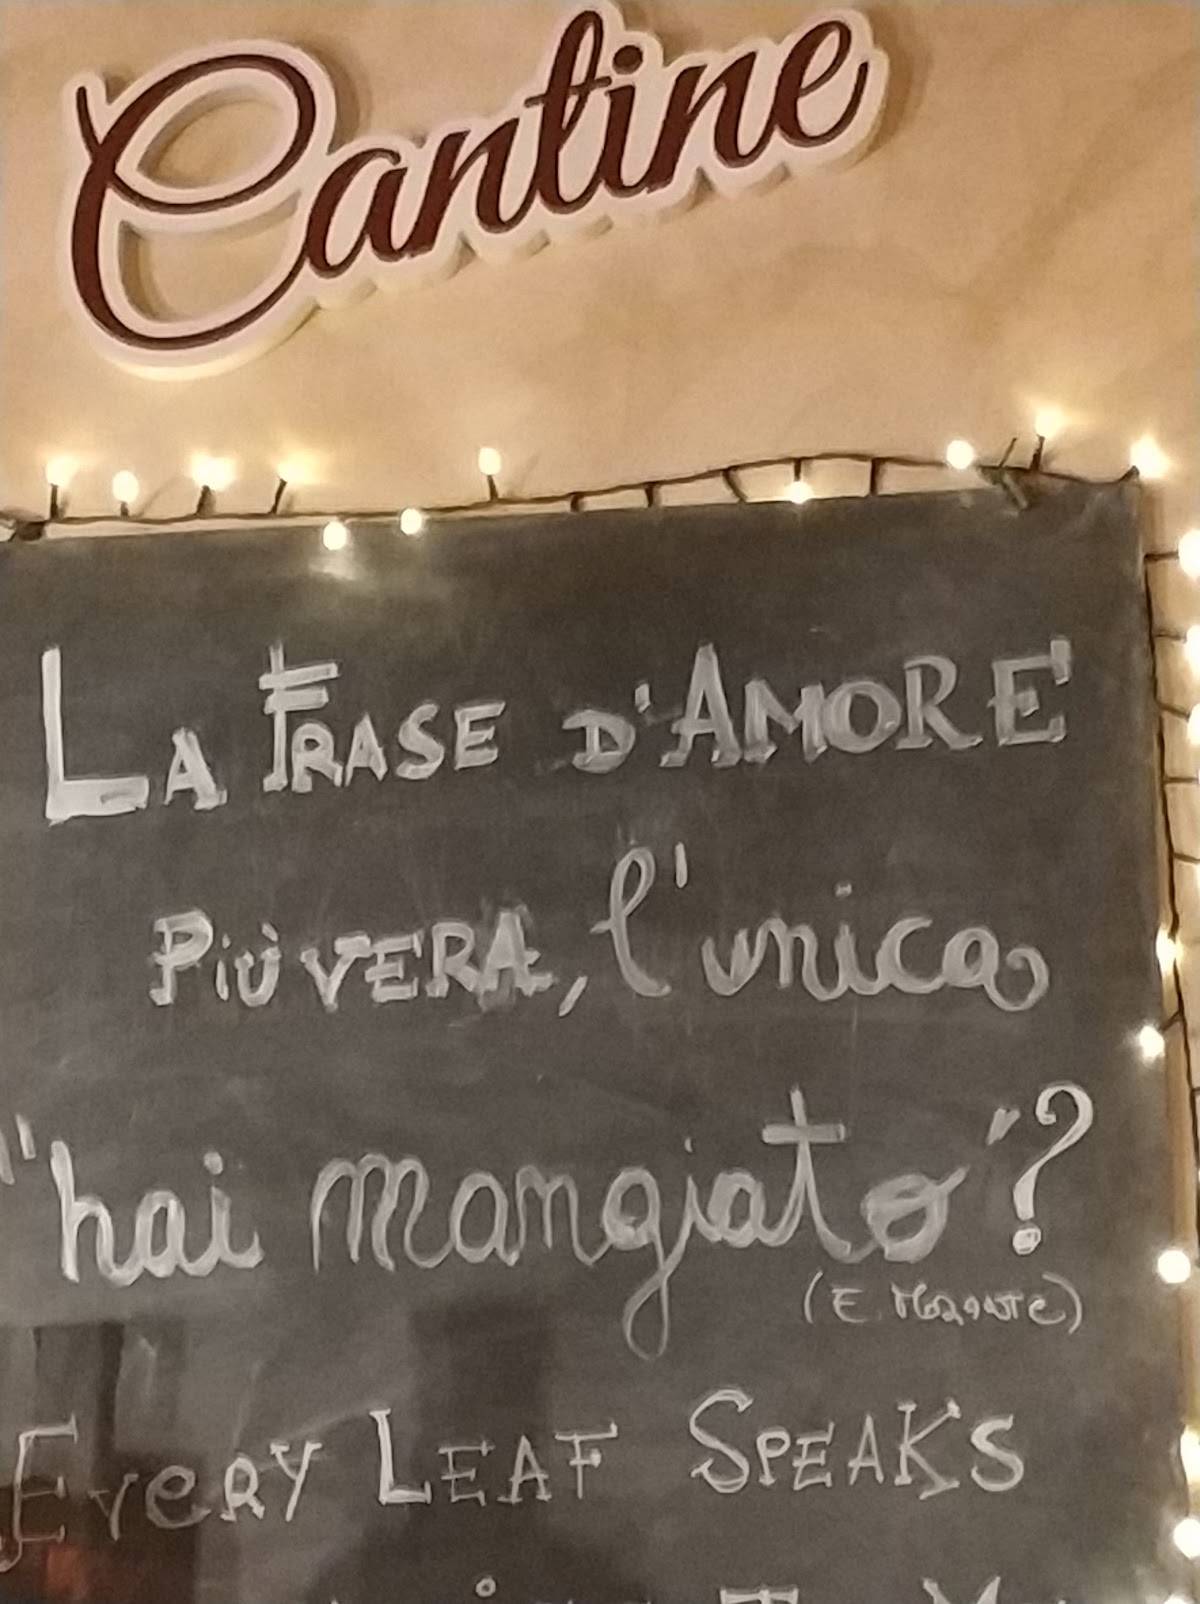 Cantine
LA FRASE D'AMORE
Più VERA, l'unica
"hai mangiato"?
(E. Morante)
EVERY LEAF SPEAKS